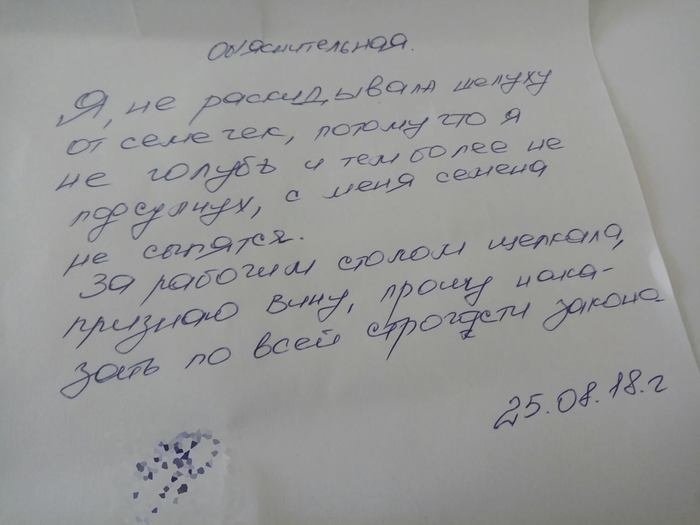 Объяснительная.
Я, не раскидывала шелуху
от семечек, потому что я
не голубь и тем более не
подсулнух, с меня семена
не сыпятся.
За рабочим столом щелкала,
признаю вину, прошу нака-
зать по всей строгости закона
25.08.18.г